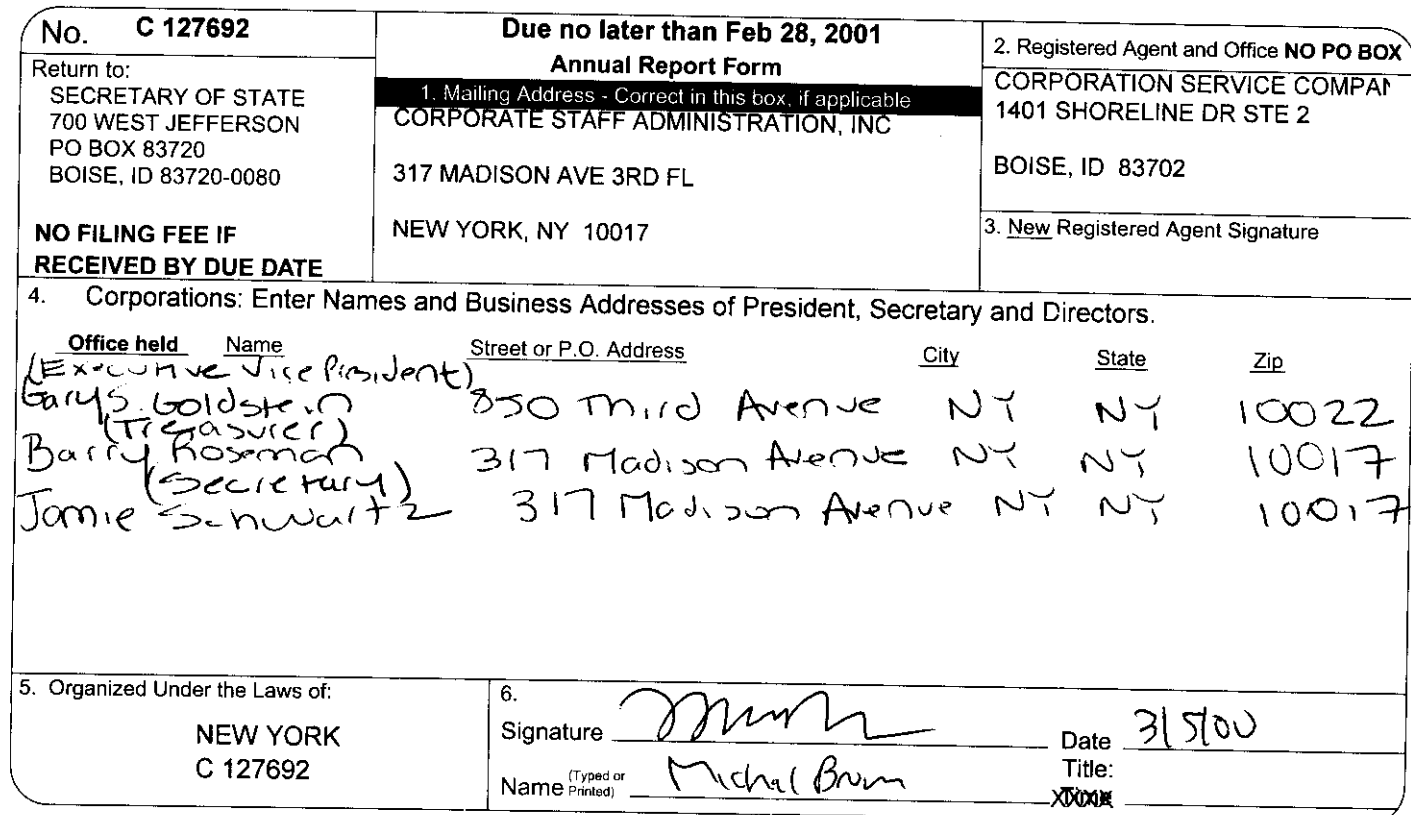 No. C 127692
Return to:
SECRETARY OF STATE
700 WEST JEFFERSON
PO BOX 83720
BOISE, ID 83720-0080
NO FILING FEE IF
RECEIVED BY DUE DATE
Due no later than Feb 28, 2001
Annual Report Form
1. Mailing Address - Correct in this box, if applicable
CORPORATE STAFF ADMINISTRATION, INC
317 MADISON AVE 3RD FL
NEW YORK, NY 10017
2. Registered Agent and Office NO PO BOX
CORPORATION SERVICE COMPAN
1401 SHORELINE DR STE 2
BOISE, ID 83702
3. New Registered Agent Signature
4. Corporations: Enter Names and Business Addresses of President, Secretary and Directors.
Office held Name Street or P.O. Address City State Zip
(Executive Vice President)
Gary S. Goldstein 850 Third Avenue NY NY 10022
(Treasurer)
Barry Roseman 317 Madison Avenue NY NY 10017
(Secretary)
Jamie Schwartz 317 Madison Avenue NY NY 10017
5. Organized Under the Laws of:
NEW YORK
C 127692
6.
Signature Date 3/5/00
Name (Typed or Printed) Michal Title: